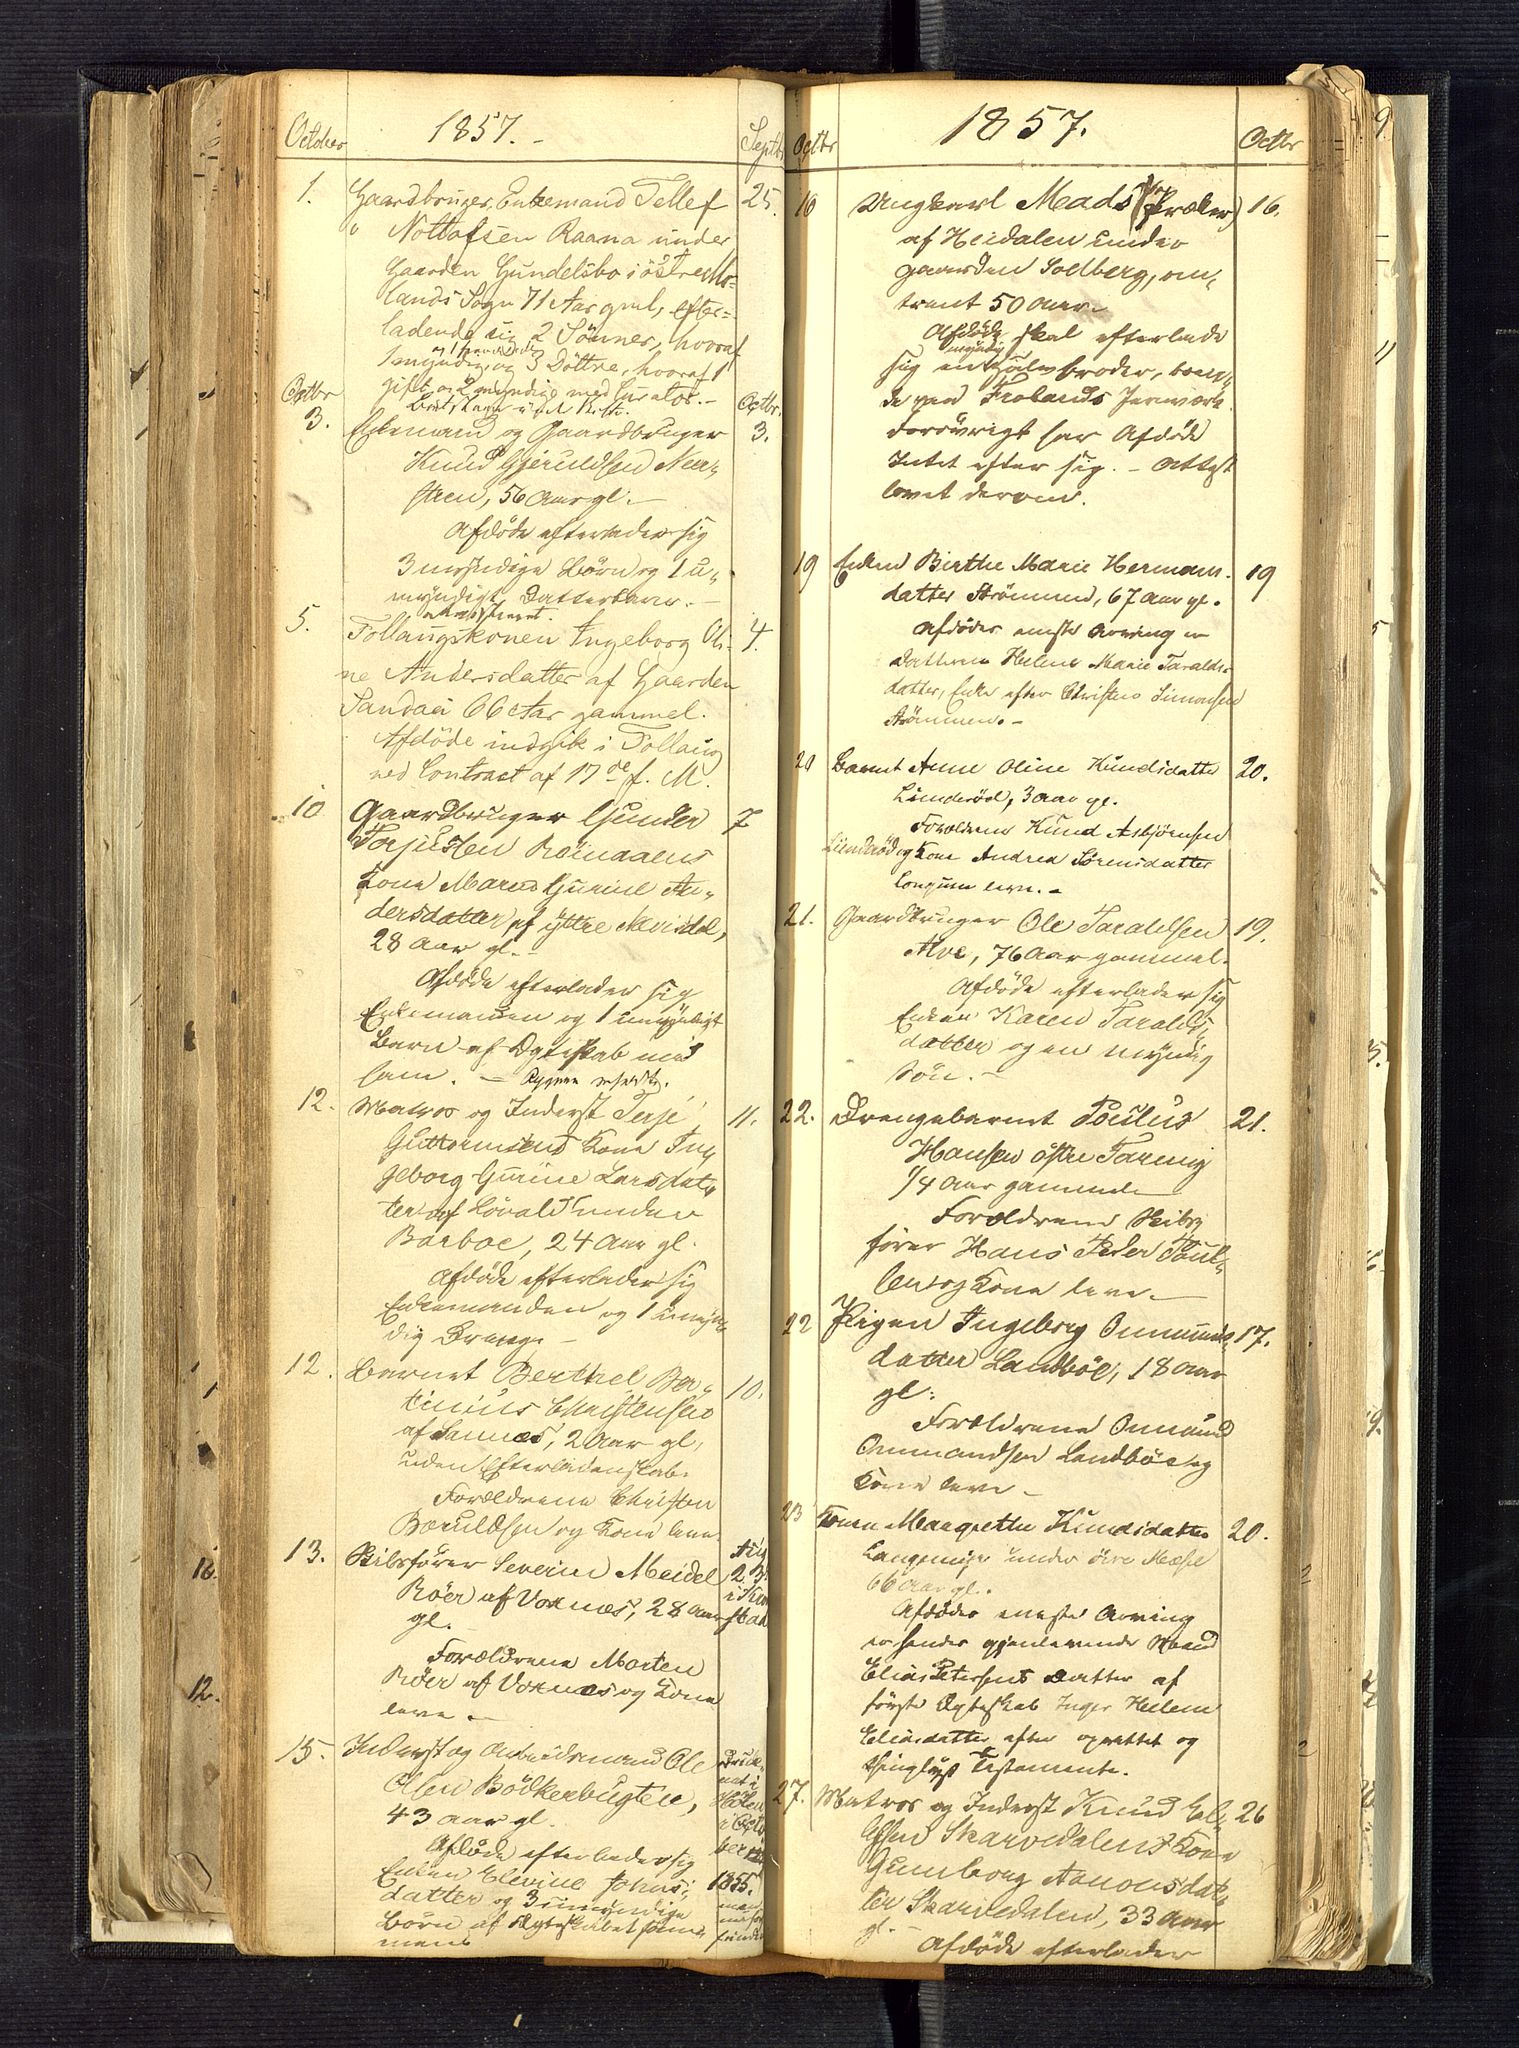 October 1857. Septbr
1. Gaardbruger, Enkemand Tellef 25.
Nottofsen Raana under
Gaarden Gundelsbo i östre Mo-
lands Sogn 71 Aar gml, efter-
ladende sig 2 Sönner, hvoraf
1 myndig, og 3 Döttre, hvoraf 1
gift og 2 umyndige med Curator.-
Octbr Octbr.
3. Enkemand og Gaardbruger 3.
Knud Gjeruldsen Neer-
steen, 56 Aar gl.-
Afdöde efterlader sig
3 myndige Börn og 1 u-
myndigt Datterbarn.-
5. Follaugskonen Ingeborg Oli- 4.
ne Andersdatter af Gaarden
Sandaa 66 Aar gammel.
Afdöde indgik i Follaug
ved Contract af 17de f. M.
10 Gaardbruger Gunder 7
Terjussen Römaaens
Kone Maren Gurine An-
dersdatter af yttre Nævisdal,
28 Aar gl.-
Afdöde efterlader sig
Enkemanden og 1 umyndigt
Barn af Ægteskab med
ham.-
12. Matros og Inderst Terje 11.
Guttormsens Kone In-
geborg Gurine Larsdat-
ter af Lövald under
Barboe, 24 Aar gl.
Afdöde efterlader sig
Enkemanden og 1 umyn-
dig Dreng.-
12. Barnet Berthel Ber- 10.
tinius Christensen
af Sannæs, 2 Aar gl,
uden Efterladenskab.
Forældrene Christen
Bæruldsen og Kone leve.
13. Skibsförer Severin Meidel Aug
Röer af Voxnæs, 28 Aar 2
gl.
Forældrene Morten
Röer af Voxnæs og Kone
leve.-
15. Inderst og Arbeidsmand Ole Druk-
Olsen Bödkerbugten, net i
43 Aar gl. i Octo-
Afdöde efterlader sig ber
Enken Elevine Johns- 1855.
datter og 3 umyndige
Börn af Ægteskabet sam-
men

Octbr 1857. Octbr
16 Ungkarl Mads (Præker) 16.
af Heidalen under
gaarden Solberg, om-
trent 50 Aar.-
Afdöde skal efterlade
sig en myndig Halvbroder, boen-
de ved Frolands Jernværk.
Forövrigt har Afdöde
Intet efter sig.- Attest
lovet derom.
19 Enken Birthe Marie Herman- 19
datter Strömmen, 67 Aar gl.
Afdödes eneste Arving er
Datteren Helene Marie Taralds-
datter, Enke efter Christen Simonsen
Strömmen.-
20 Barnet Anne Oline Knudsdatter 20.
Lunderöd, 3 Aar gl.
Forældrene Knud Asbjörnsen
Lunderöd og Kone Andrea Sörensdatter
Longum leve.-
21. Gaardbruger Ole Taraldsen 19.
Alve, 76 Aar gammel.
Afdöde efterlader sig
Enken Karen Taralds-
datter og en myndig
Sön.-
22. Drengebarnet Poulus 21.
Hansen östre Færvig
1/4 Aar gammel.-
Forældrene Skibs-
förer Hans Peder Poul-
sen og Kone leve.-
22 Pigen Ingeborg Ommunds- 17.
datter Landböe, 18 Aar
gl.
Forældrene Ommund
Ommundsen Landböe og
Kone leve.-
23 Konen Margrethe Knudsdatter 20.
Langemyr under övre Mæsel
66 Aar gl.
Afdödes eneste Arving
er hendes gjenlevende Mand
Elias Petersens Datter af
förste Ægteskab Inger Helene
Eliasdatter efter oprettet og
thinglyst Testamente.
27. Matros og Inderst Knud El- 26
lefsen Skarvedalens Kone
Gunnborg Aanonsdat-
ter Skarvedalen, 33 Aar
gl.-
Afdöde efterlader